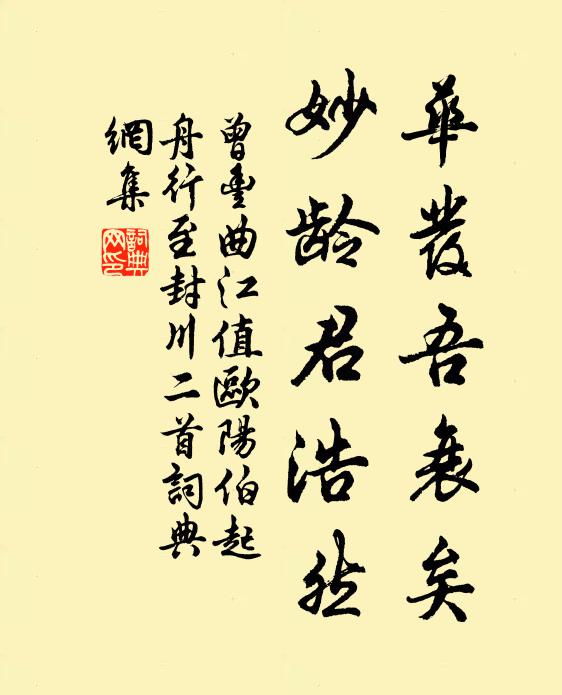 華發吾衰矣
妙齡君浩然
曾豐曲江值歐陽伯起
舟行至封川二首詞典
網集
詞典網印